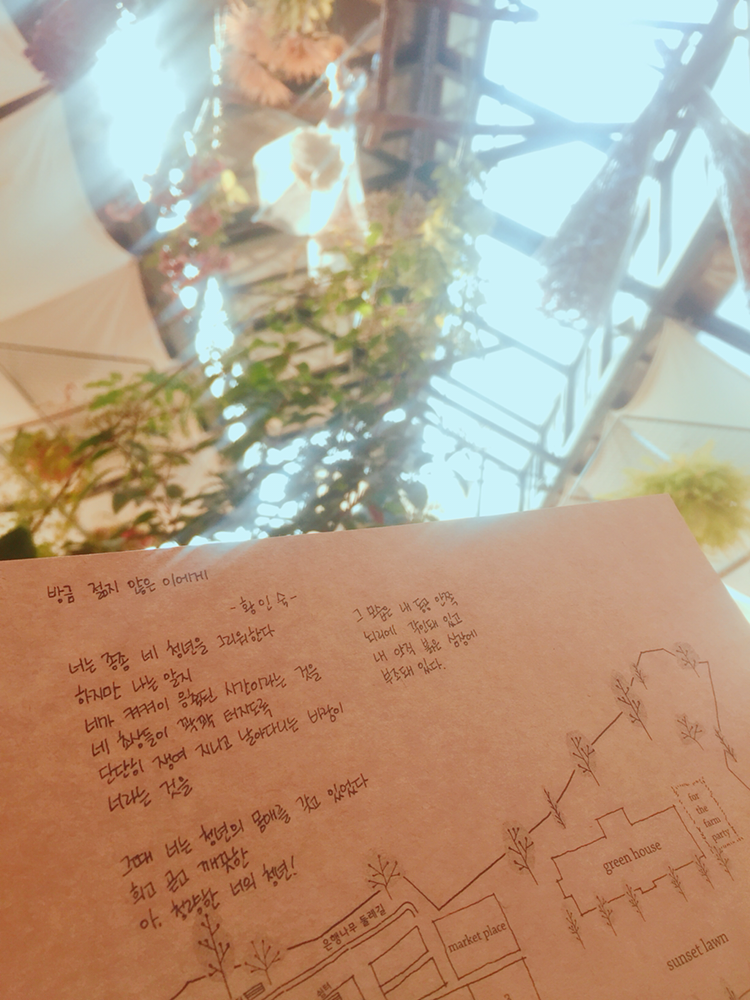 방금 젊지 않은 이에게
- 황인숙 -
너는 종종 네 청년을 그리워한다
하지만 나는 알지
네가 켜켜이 응축된 시간이라는 것을
네 초상들이 꽉꽉 터지도록
단단히 쟁여 지니고 날아다니는 바람이
너라는 것을
그때 너는 청년의 몸매를 갖고 있었다
희고 곧고 깨끗한
아, 청량한 너의 청년!
그 모습은 내 동공 안쪽
뇌리에 각인돼 있고
내 아직 붉은 심장에
부조돼 있다.
for
the
farm
party
green house
market place
은행나무 둘레길
sunset lawn
3